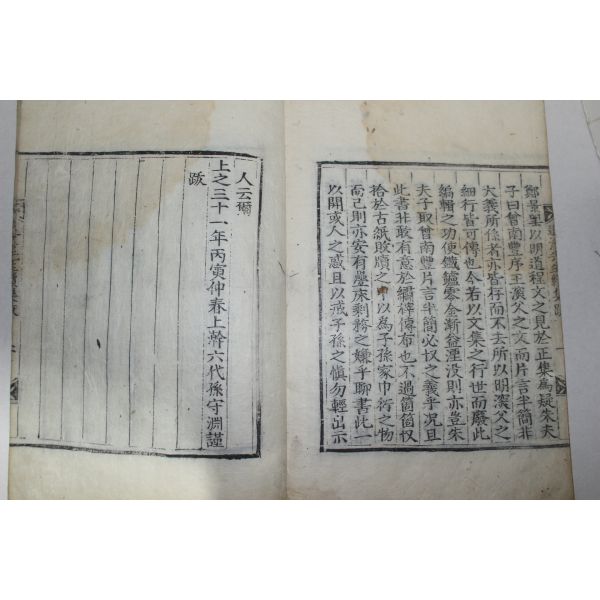 鄭景望以明道程文之見於正集爲疑朱夫
子曰曾南豐序王深父之文而片言半簡非
大義所係者亦皆存而不去所以明深父之
細行皆可傳也今若以文集之行世而廢此
編輯之功使鐵鑪零金漸益湮沒則亦豈朱
夫子取曾南豐片言半簡必收之義乎況且
此書非敢有意於繡梓傳布也不過箇箇收
拾於古紙敗牘之中以爲子孫家巾衍之物
而已則亦安有疊床剩務之嫌乎聊書此一
以開或人之惑且以戒子孫之愼勿輕出示
人云爾
上之三十一年丙寅仲春上澣六代孫守淵謹
跋